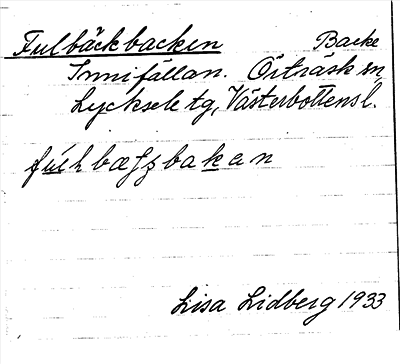 Fulbäckbacken Backe
Innifällan. Örträsk sn
Lycksele tg, Västerbottens l.
Lisa Lidberg 1933